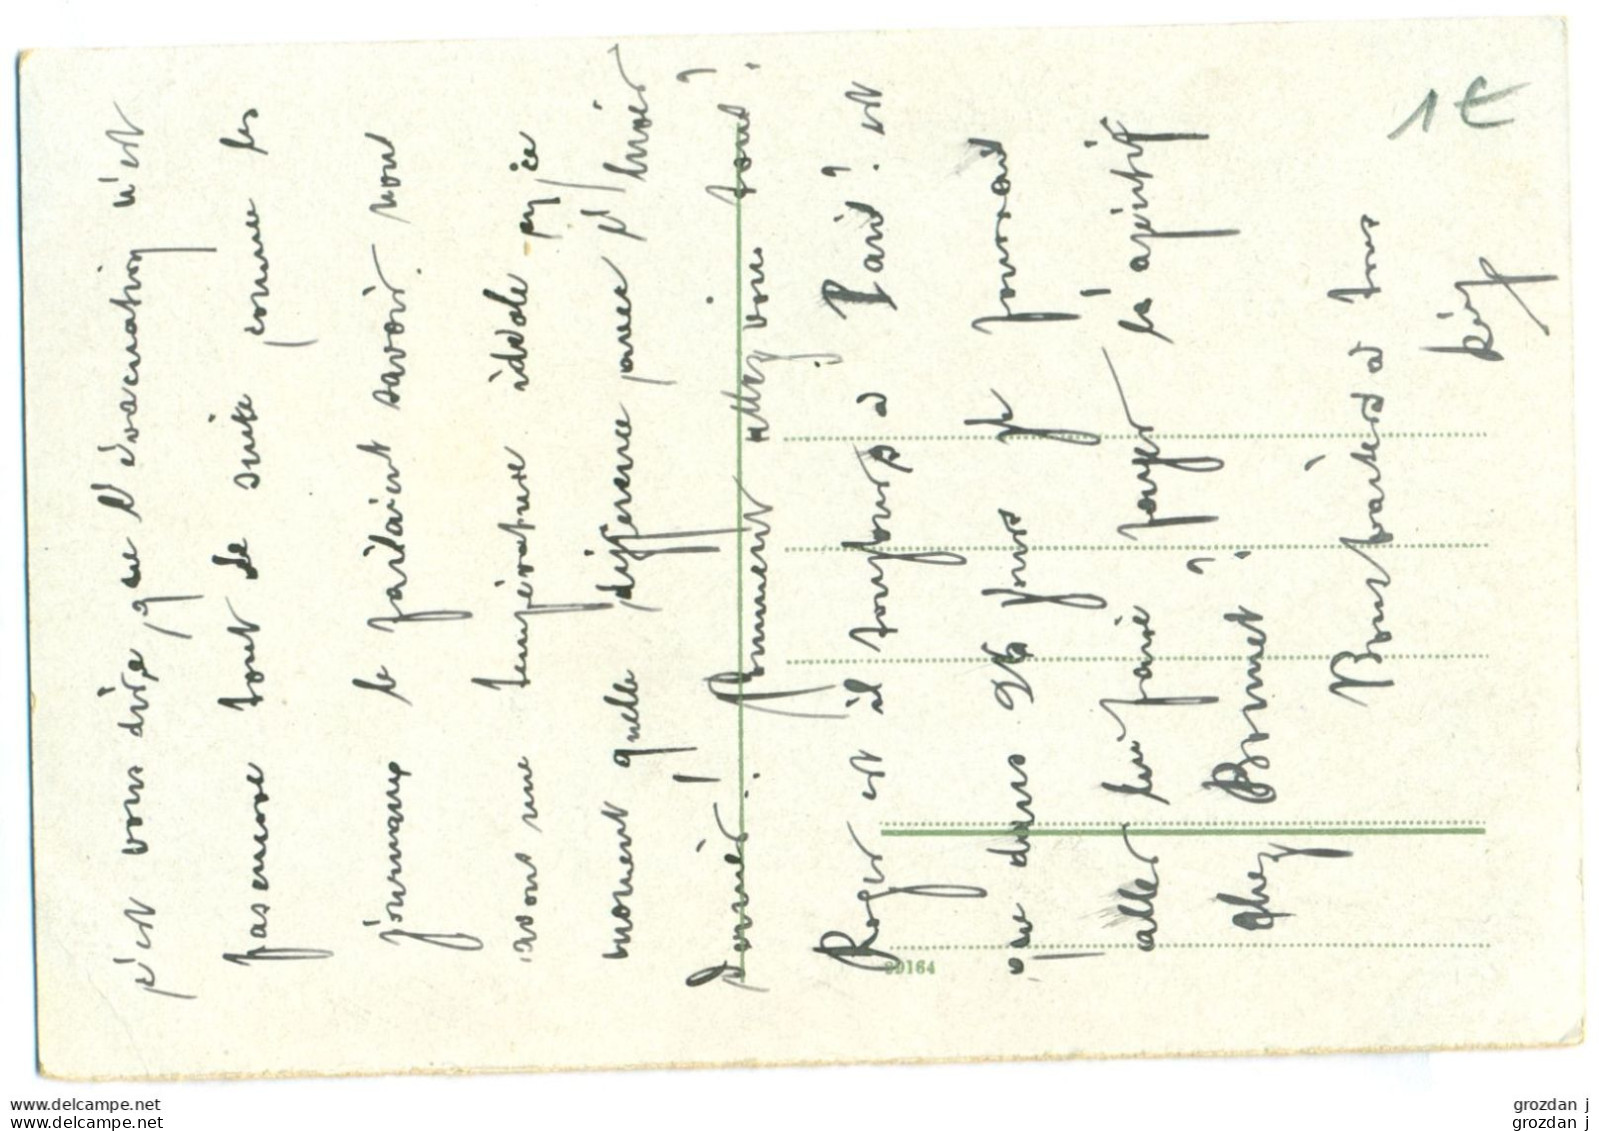 c'est vous dire que l'évacuation n'est
pas encore tout de suite comme les
journaux le faisaient savoir. Nous
avons une température idéale en ce
moment quelle différence avec l'hiver
dernier. Comment allez vous tous?
Roger est il toujours à Paris! est
ce dans 26 jours je pourrai
aller lui faire payer l'apéritif
chez Bonnet!
Bons baisers à tous
1 €
39164
www.delcampe.net
www.delcampe.net
grozdan j
grozdan j